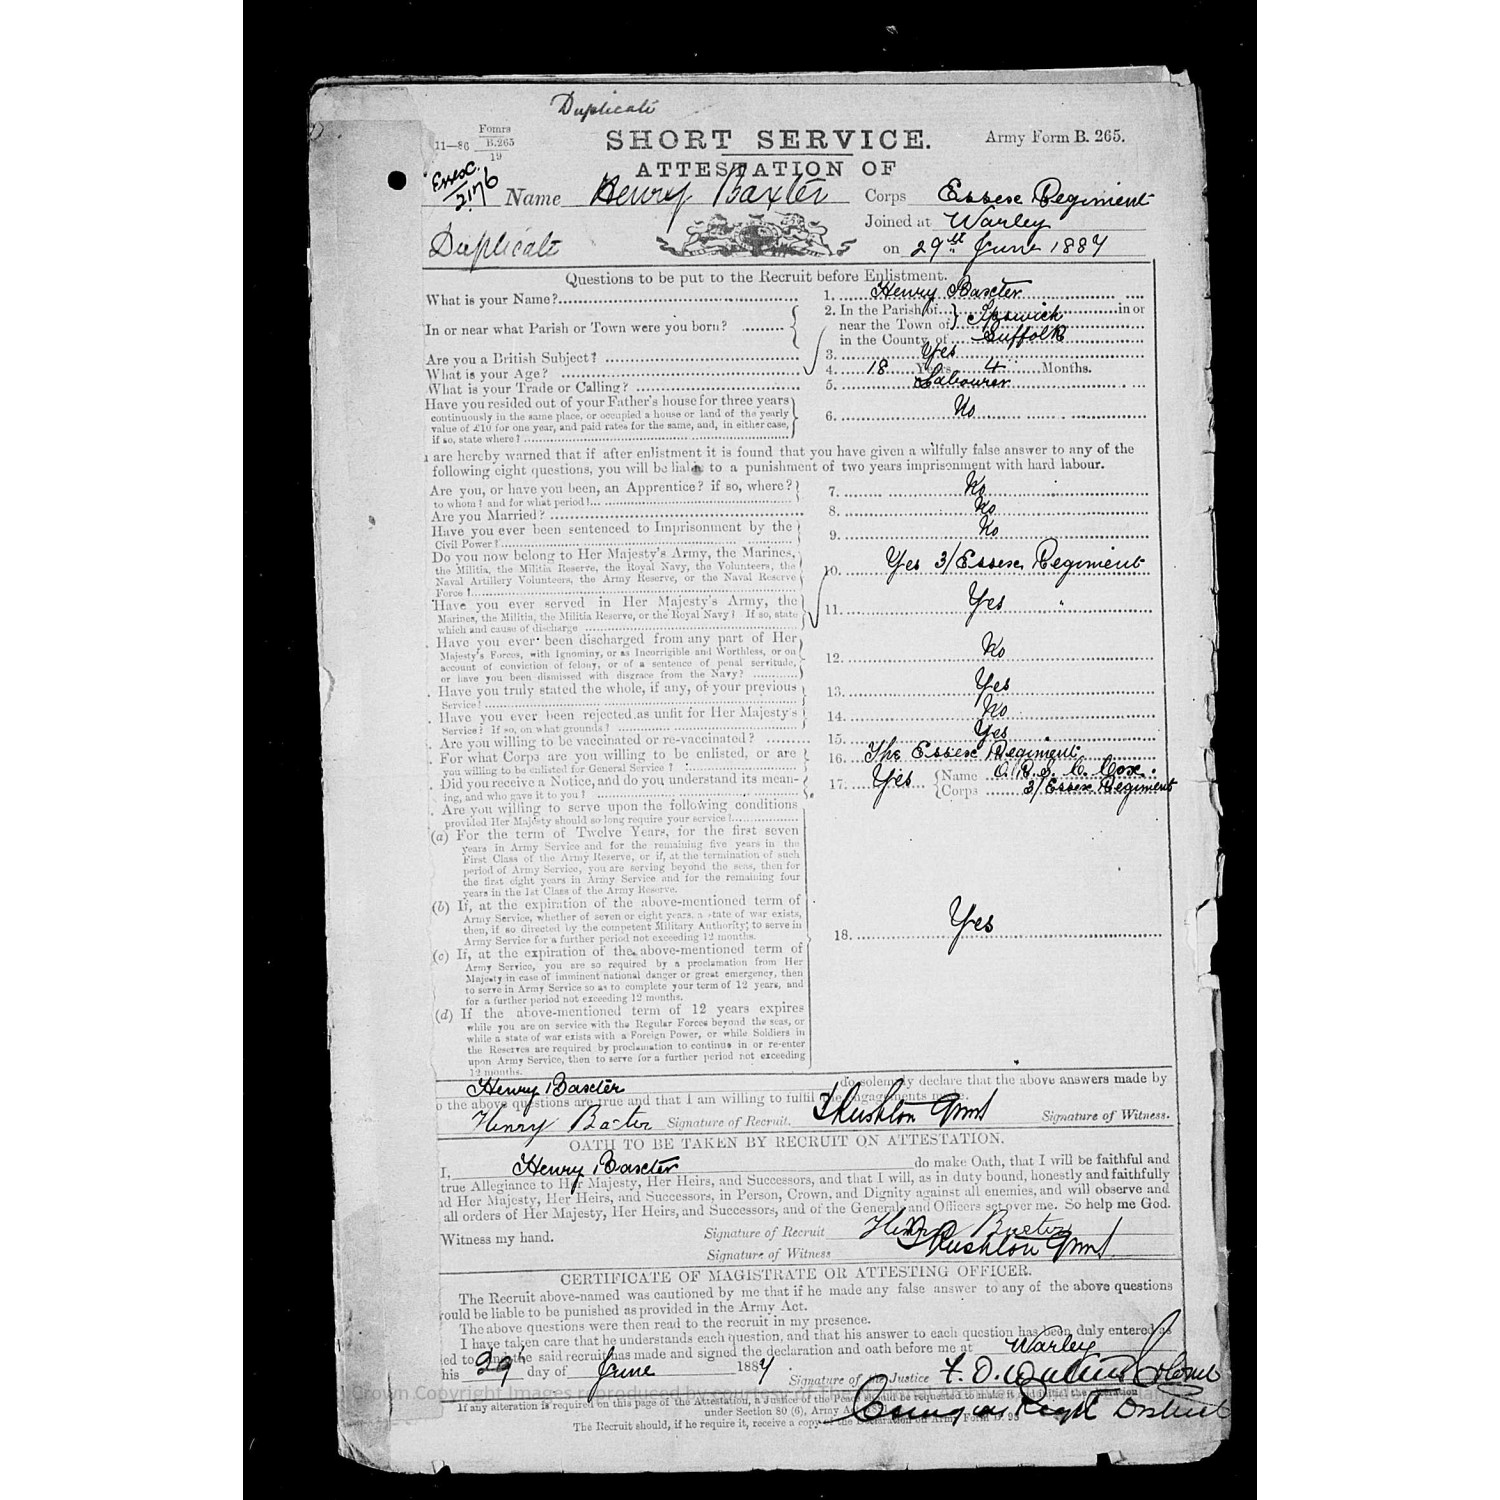 Duplicate
11—86 Forms B.265 19
SHORT SERVICE.
Army Form B. 265.
ATTESTATION OF
Essex 2176
Name Henry Baxter Corps Essex Regiment
Joined at Warley
Duplicate
on 29st June 1887
Questions to be put to the Recruit before Enlistment.
What is your Name? 1. Henry Baxter
In or near what Parish or Town were you born? 2. In the Parish of Ipswich in or
near the Town of
in the County of Suffolk
Are you a British Subject? 3. Yes
What is your Age? 4. 18 Years 4 Months.
What is your Trade or Calling? 5. Labourer
Have you resided out of your Father's house for three years
continuously in the same place, or occupied a house or land of the yearly
value of £10 for one year, and paid rates for the same, and, in either case,
if so, state where? 6. No
are hereby warned that if after enlistment it is found that you have given a wilfully false answer to any of the
following eight questions, you will be liable to a punishment of two years imprisonment with hard labour.
Are you, or have you been, an Apprentice? if so, where?
to whom? and for what period? 7. No
Are you Married? 8. No
Have you ever been sentenced to Imprisonment by the
Civil Power? 9. No
Do you now belong to Her Majesty's Army, the Marines,
the Militia, the Militia Reserve, the Royal Navy, the Volunteers, the
Naval Artillery Volunteers, the Army Reserve, or the Naval Reserve
Force? 10. Yes 3/Essex Regiment
Have you ever served in Her Majesty's Army, the
Marines, the Militia, the Militia Reserve, or the Royal Navy? If so, state
which and cause of discharge 11. Yes "
Have you ever been discharged from any part of Her
Majesty's Forces, with Ignominy, or as Incorrigible and Worthless, or on
account of conviction of felony, or of a sentence of penal servitude,
or have you been dismissed with disgrace from the Navy? 12. No
Have you truly stated the whole, if any, of your previous
Service? 13. Yes
Have you ever been rejected as unfit for Her Majesty's
Service? If so, on what grounds? 14. No
Are you willing to be vaccinated or re-vaccinated? 15. Yes
For what Corps are you willing to be enlisted, or are
you willing to be enlisted for General Service? 16. The Essex Regiment
Did you receive a Notice, and do you understand its mean-
ing, and who gave it to you? 17. Yes Name C. Cox.
Corps 3/Essex Regiment
Are you willing to serve upon the following conditions
provided Her Majesty should so long require your service?
(a) For the term of Twelve Years, for the first seven
years in Army Service and for the remaining five years in the
First Class of the Army Reserve, or if, at the termination of such
period of Army Service, you are serving beyond the seas, then for
the first eight years in Army Service and for the remaining four
years in the 1st Class of the Army Reserve.
(b) If, at the expiration of the above-mentioned term of
Army Service, whether of seven or eight years, a state of war exists,
then, if so directed by the competent Military Authority; to serve in
Army Service for a further period not exceeding 12 months.
18. Yes
(c) If, at the expiration of the above-mentioned term of
Army Service, you are so required by a proclamation from Her
Majesty in case of imminent national danger or great emergency, then
to serve in Army Service so as to complete your term of 12 years, and
for a further period not exceeding 12 months.
(d) If the above-mentioned term of 12 years expires
while you are on service with the Regular Forces beyond the seas, or
while a state of war exists with a Foreign Power, or while Soldiers in
the Reserves are required by proclamation to continue in or re-enter
upon Army Service, then to serve for a further period not exceeding
12 months.
Henry Baxter do solemnly declare that the above answers made by
o the above questions are true and that I am willing to fulfil the engagements made.
Henry Baxter Signature of Recruit. Signature of Witness.
OATH TO BE TAKEN BY RECRUIT ON ATTESTATION.
I, Henry Baxter do make Oath, that I will be faithful and
true Allegiance to Her Majesty, Her Heirs, and Successors, and that I will, as in duty bound, honestly and faithfully
nd Her Majesty, Her Heirs, and Successors, in Person, Crown, and Dignity against all enemies, and will observe and
all orders of Her Majesty, Her Heirs, and Successors, and of the Generals and Officers set over me. So help me God.
Signature of Recruit Henry Baxter
Witness my hand.
Signature of Witness
CERTIFICATE OF MAGISTRATE OR ATTESTING OFFICER.
The Recruit above-named was cautioned by me that if he made any false answer to any of the above questions
ould be liable to be punished as provided in the Army Act.
The above questions were then read to the recruit in my presence.
I have taken care that he understands each question, and that his answer to each question has been duly entered as
ed to and the said recruit has made and signed the declaration and oath before me at Warley
his 29 day of June 1887
Signature of the Justice
Crown Copyright Images reproduced by courtesy of The National
If any alteration is required on this page of the Attestation, a Justice of the Peace should be requested to make it and initial the alteration
under Section 80 (6), Army Act
The Recruit should, if he require it, receive a copy of the Declaration on Army Form
Regtl District